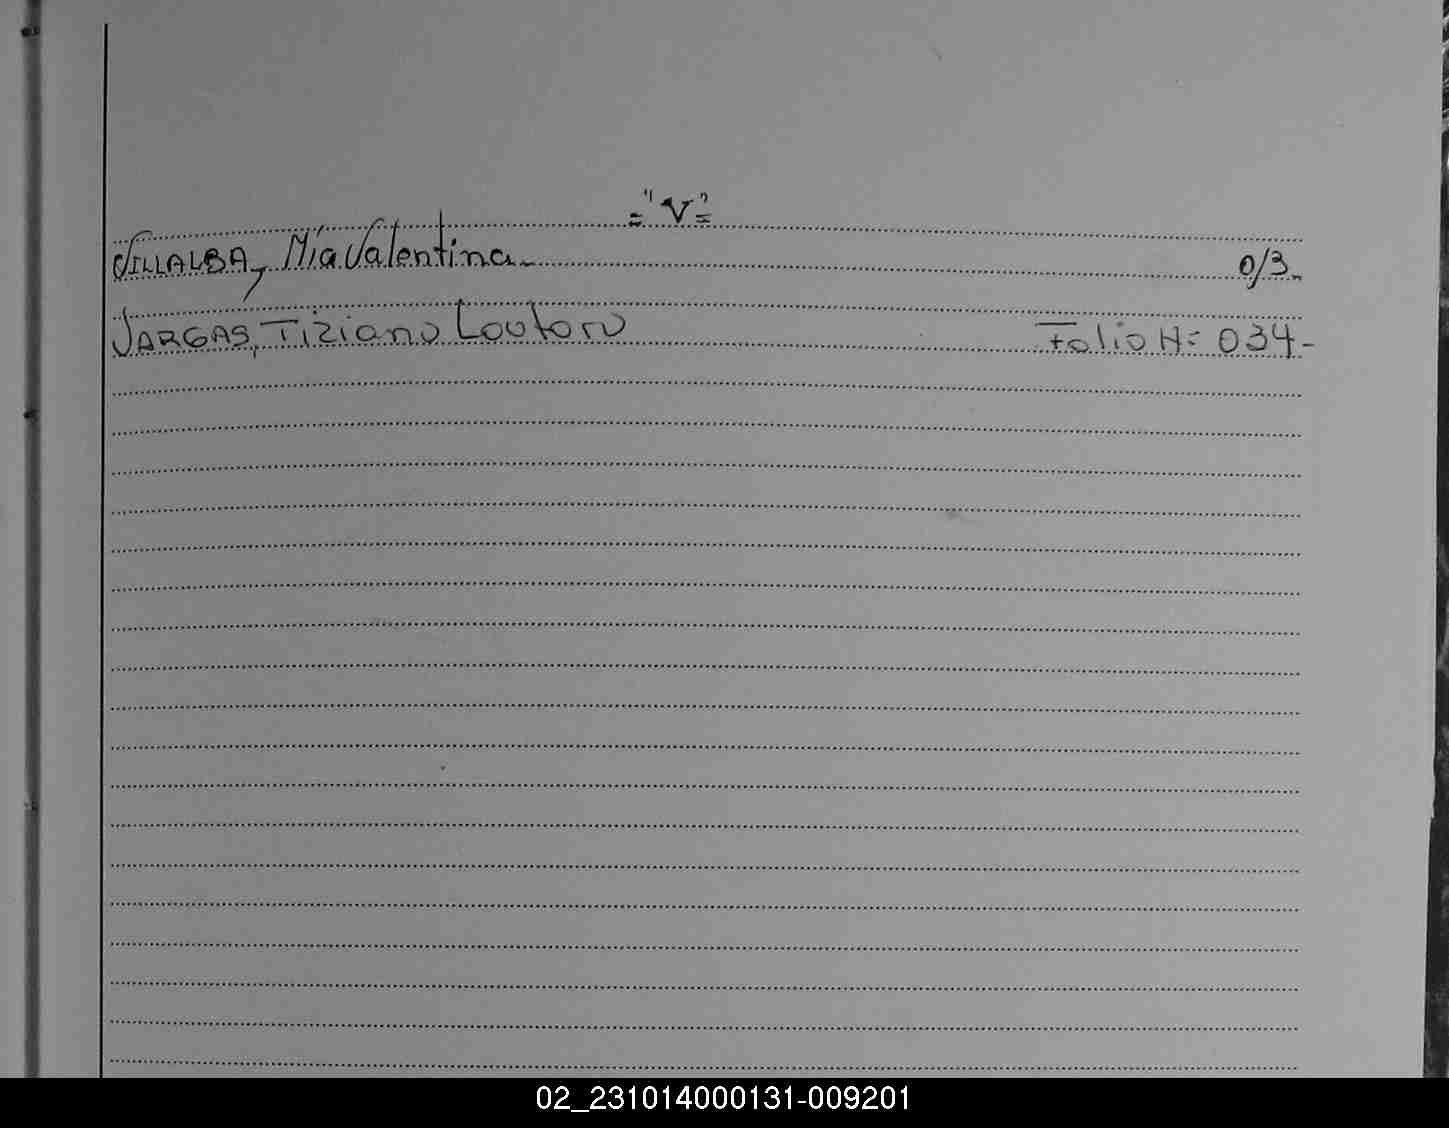 ="V"=
VILLALBA, Mía Valentina.- 013.-
VARGAS, Tiziano Folio Nº: 034-
02_231014000131-009201